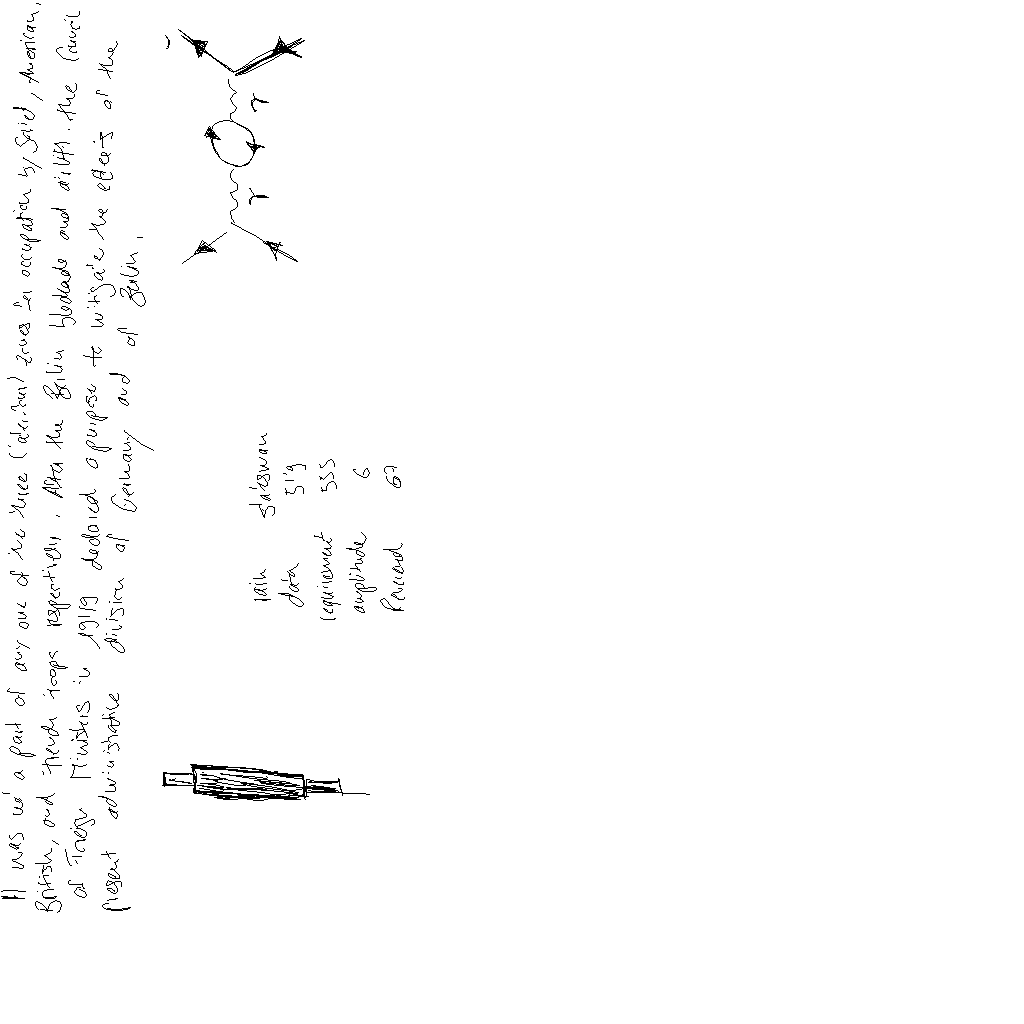 It was not a part of any one of the three (later four) zones for occupation by Soviet, American,
British, and French troops respectively. After the Berlin blockade and airlift, the Council
of Foreign Ministers in 1949 declared a purpose to mitigate the effects of the
present administrative division of Germany and of Berlin.
γ
γ
rain statesman
data 519
requirement 533
amplitude 6
Reverend 67